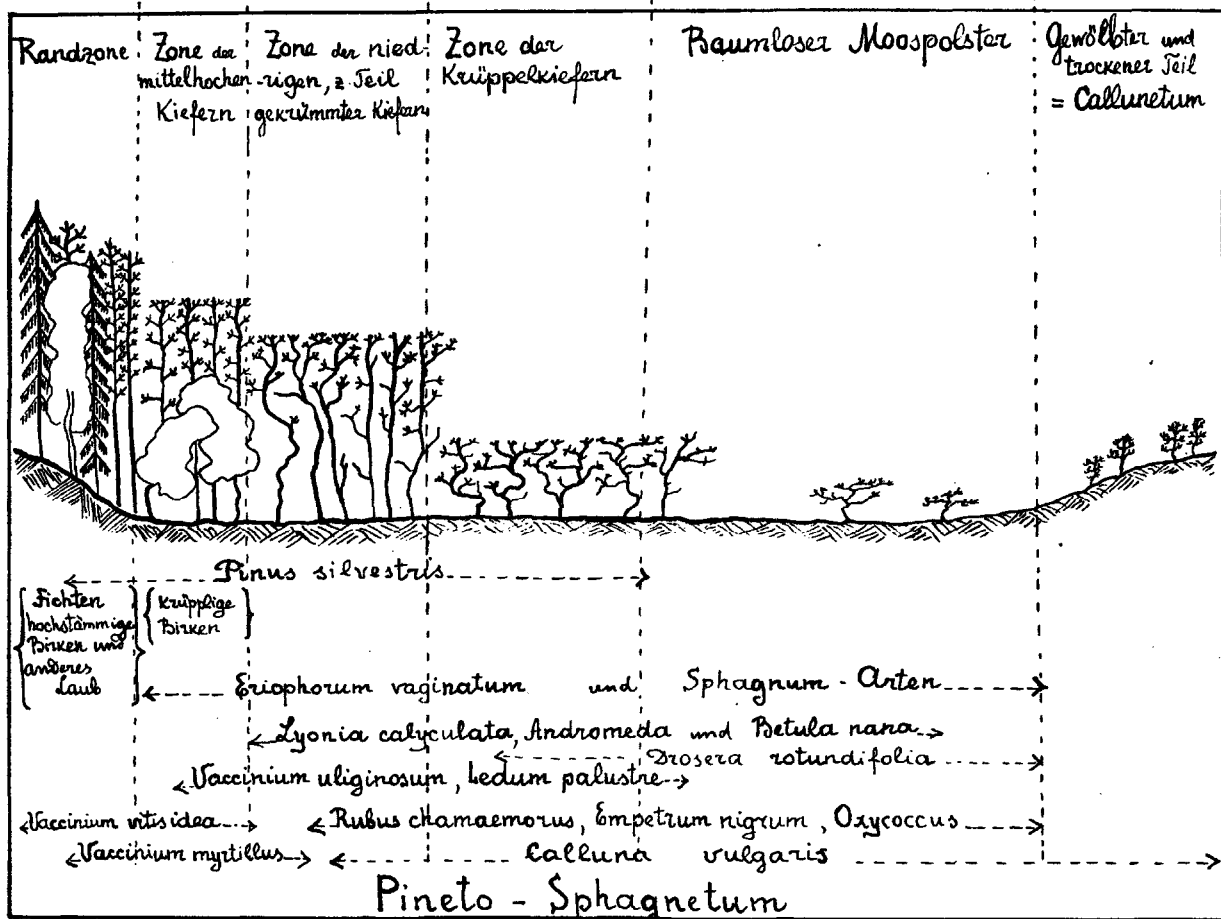 Randzone
Zone der
mittelhochen
Kiefern
Zone der nied-
rigen, z. Teil
gekrümmter Kiefern
Zone der
Krüppelkiefern
Baumloser Moospolster
Gewölbter und
trockener Teil
= Callunetum
Pinus silvestris
Fichten
hochstämmige
Birken und
anderes
Laub
krüpplige
Birken
Eriophorum vaginatum und Sphagnum - Arten
Lyonia calyculata, Andromeda und Betula nana
Drosera rotundifolia
Vaccinium uliginosum, Ledum palustre
Vaccinium vitis idea
Rubus chamaemorus, Empetrum nigrum, Oxycoccus
Vaccinium myrtillus
Calluna vulgaris
Pineto - Sphagnetum